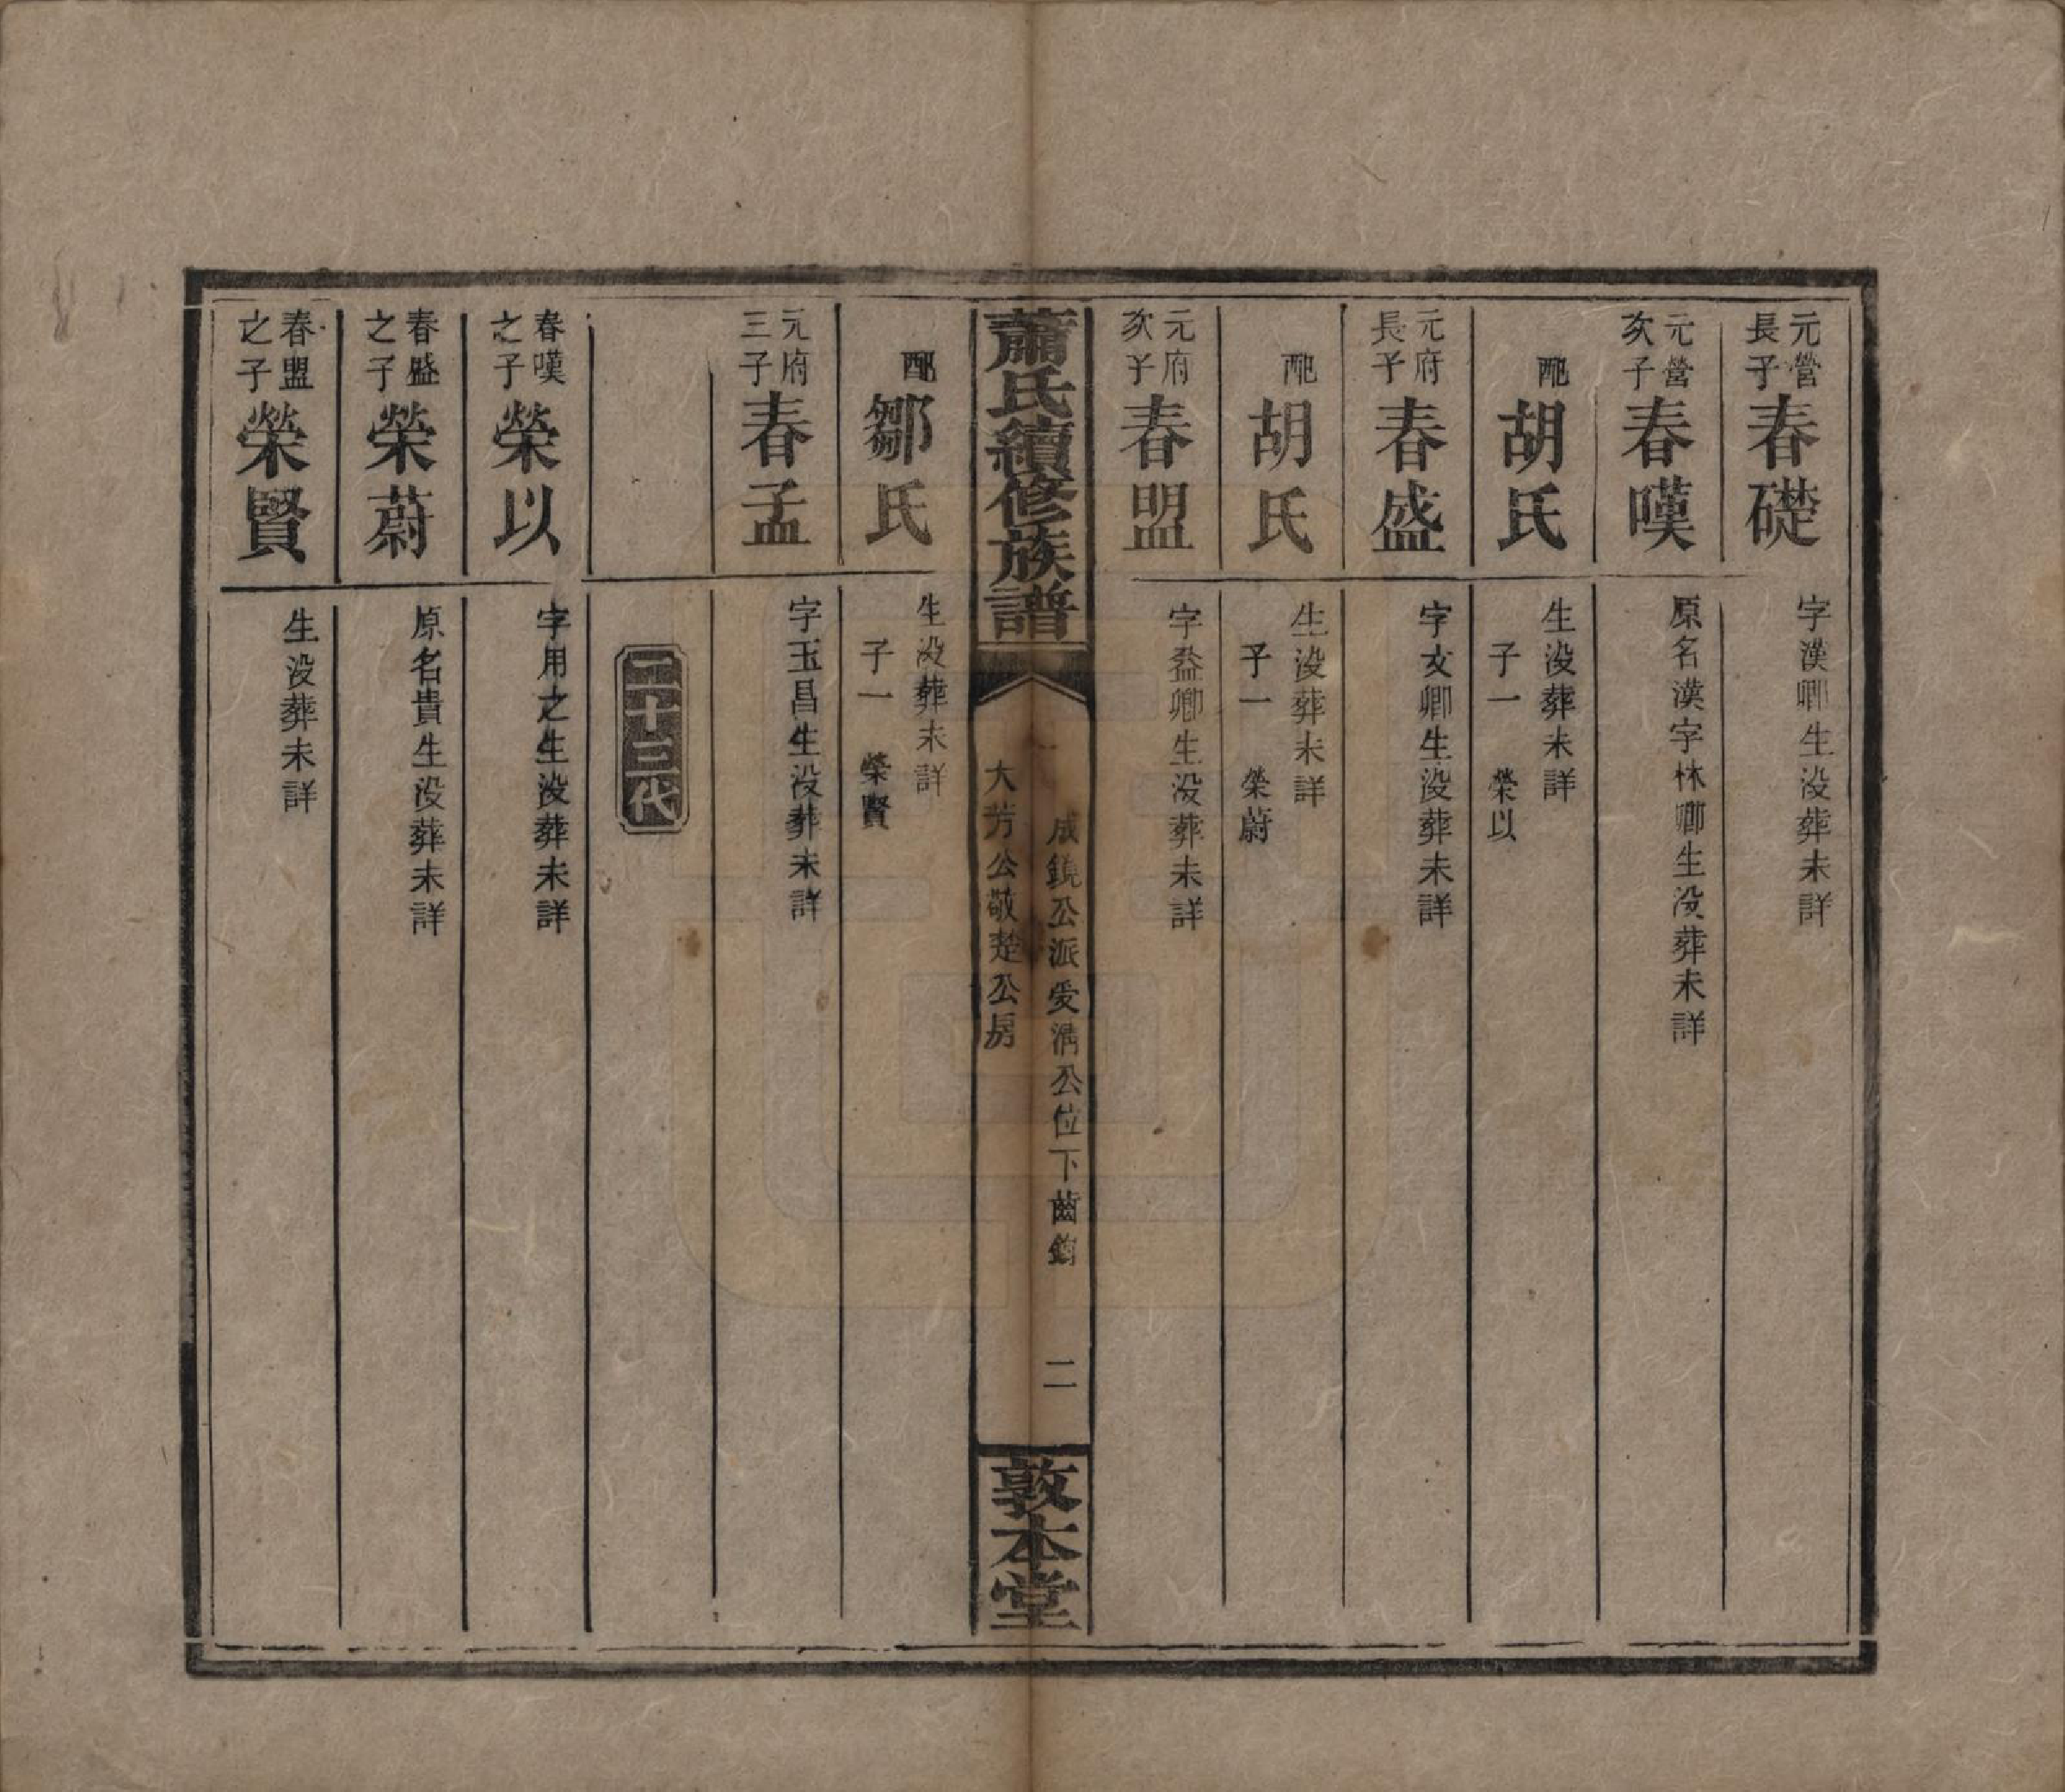 元營長子春礎
字漢卿生没葬未詳
元營次子春嘆
原名漢字林卿生没葬未詳
配胡氏
生没葬未詳
子一 榮以
元府長子春盛
字文卿生没葬未詳
配胡氏
生没葬未詳
子一 榮蔚
元府次子春盟
字益卿生没葬未詳
蕭氏續修族譜
成鏡公派爰溝公位下齒錄
二
大芳公敬楚公房
敦本堂
配鄒氏
生没葬未詳
子一 榮賢
元府三子春孟
字玉昌生没葬未詳
二十三代
春嘆之子榮以
字用之生没葬未詳
春盛之子榮蔚
原名貴生没葬未詳
春盟之子榮賢
生没葬未詳